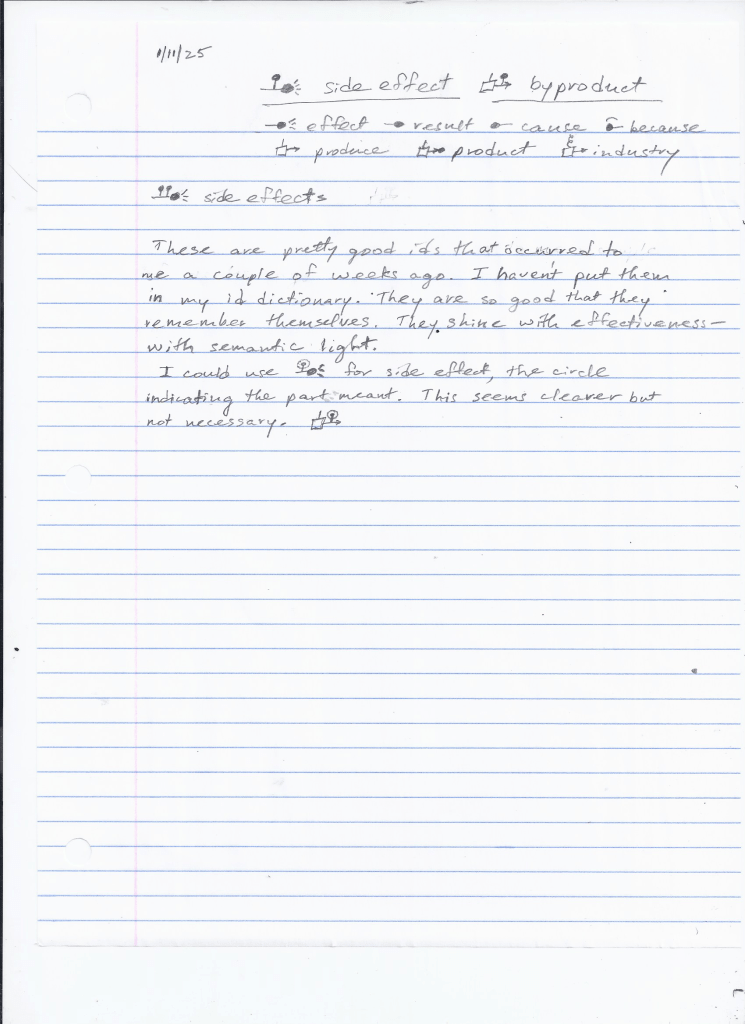 1/11/25
side effect byproduct
effect result cause because
produce product industry
side effects
These are pretty good ids that occurred to
me a couple of weeks ago. I haven't put them
in my id dictionary. They are so good that they
remember themselves. They shine with effectiveness—
with semantic light.
I could use for side effect, the circle
indicating the part meant. This seems clearer but
not necessary.